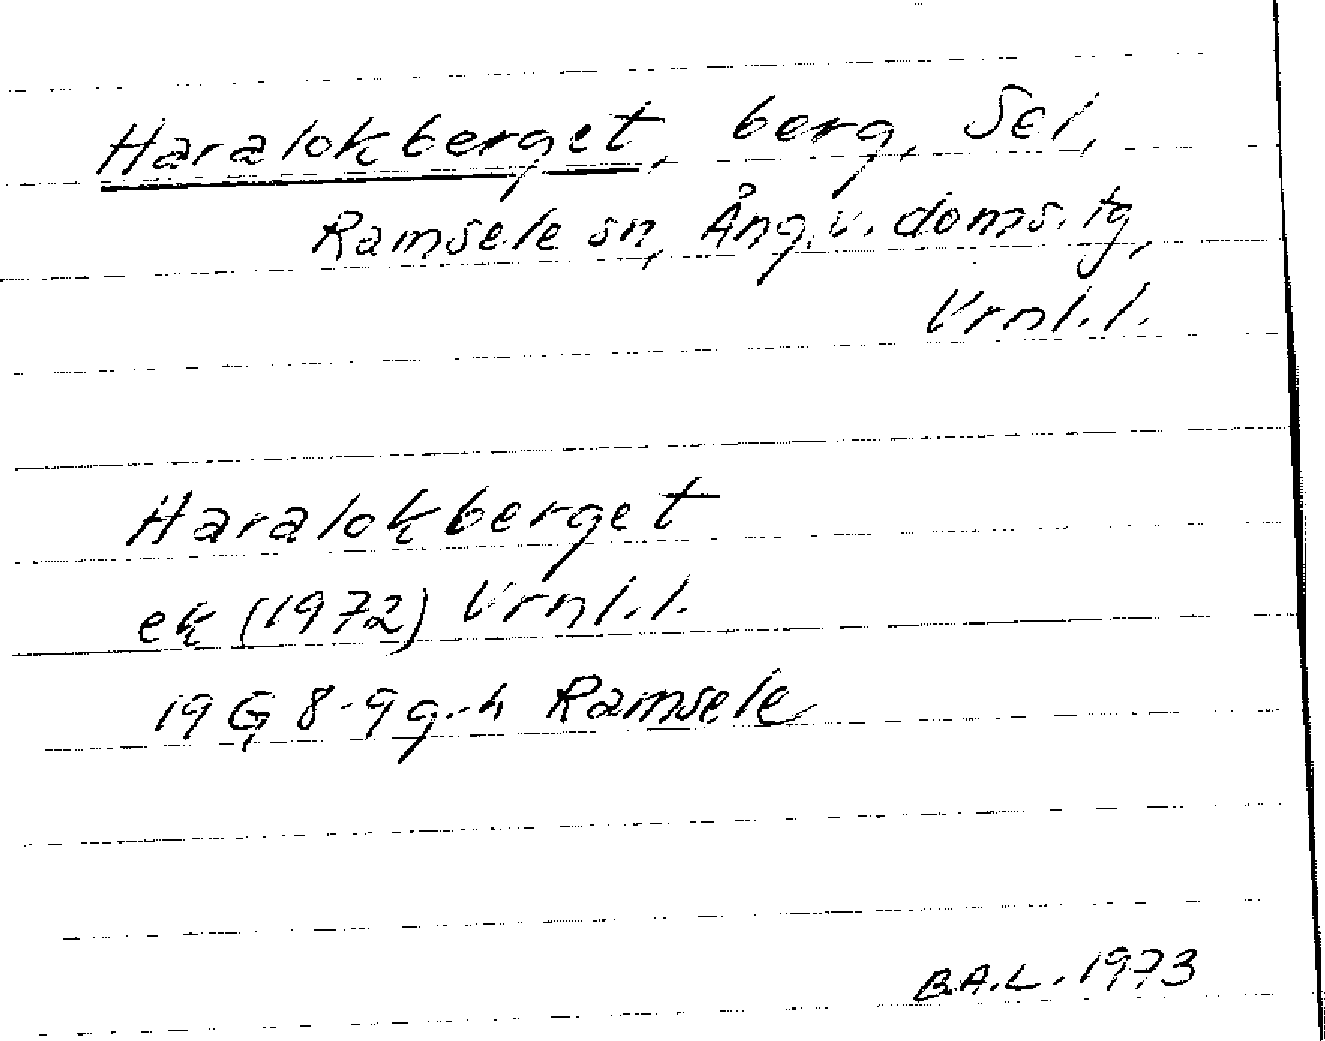 Haralokberget, berg, Sel,
Ramsele sn, Ång.v. doms. tg,
Vrnl.l.
Haralokberget
ek (1972) Vrnl.l.
19 G 8-9 g-h Ramsele
B.A.L. 1973